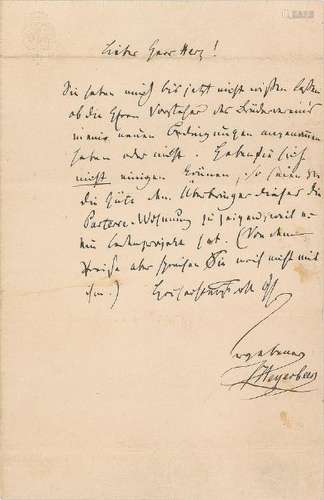 Lieber Herr Herz!
Sie haben mich bis jetzt nicht wissen lassen
ob die Herren Vorsteher des Brüdervereins
meine neuen Bedingungen angenommen
haben oder nicht. Haben Sie sich
nicht einigen können, so seien Sie
die Güte dem Überbringer dieses die
Parterre-Wohnung zu zeigen, weil er
ein hat. (Von dem
Preise aber sprechen Sie noch nicht mit
ihm.) Hochachtungsvoll
ergebener
Meyerbeer